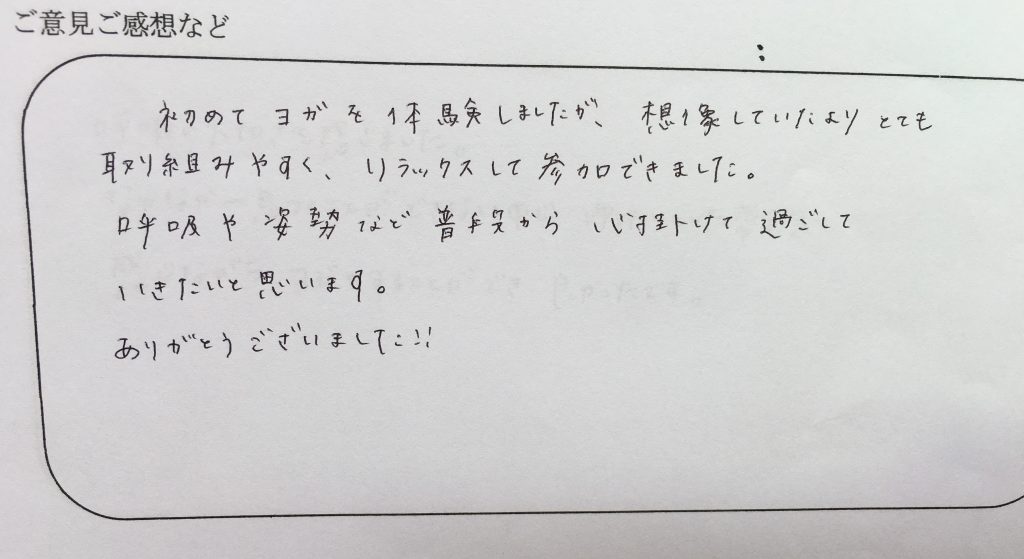 ご意見ご感想など
初めてヨガを体験しましたが、想像していたよりとても
取り組みやすく、リラックスして参加できました。
呼吸や姿勢など普段から心掛けて過ごして
いきたいと思います。
ありがとうございました!!